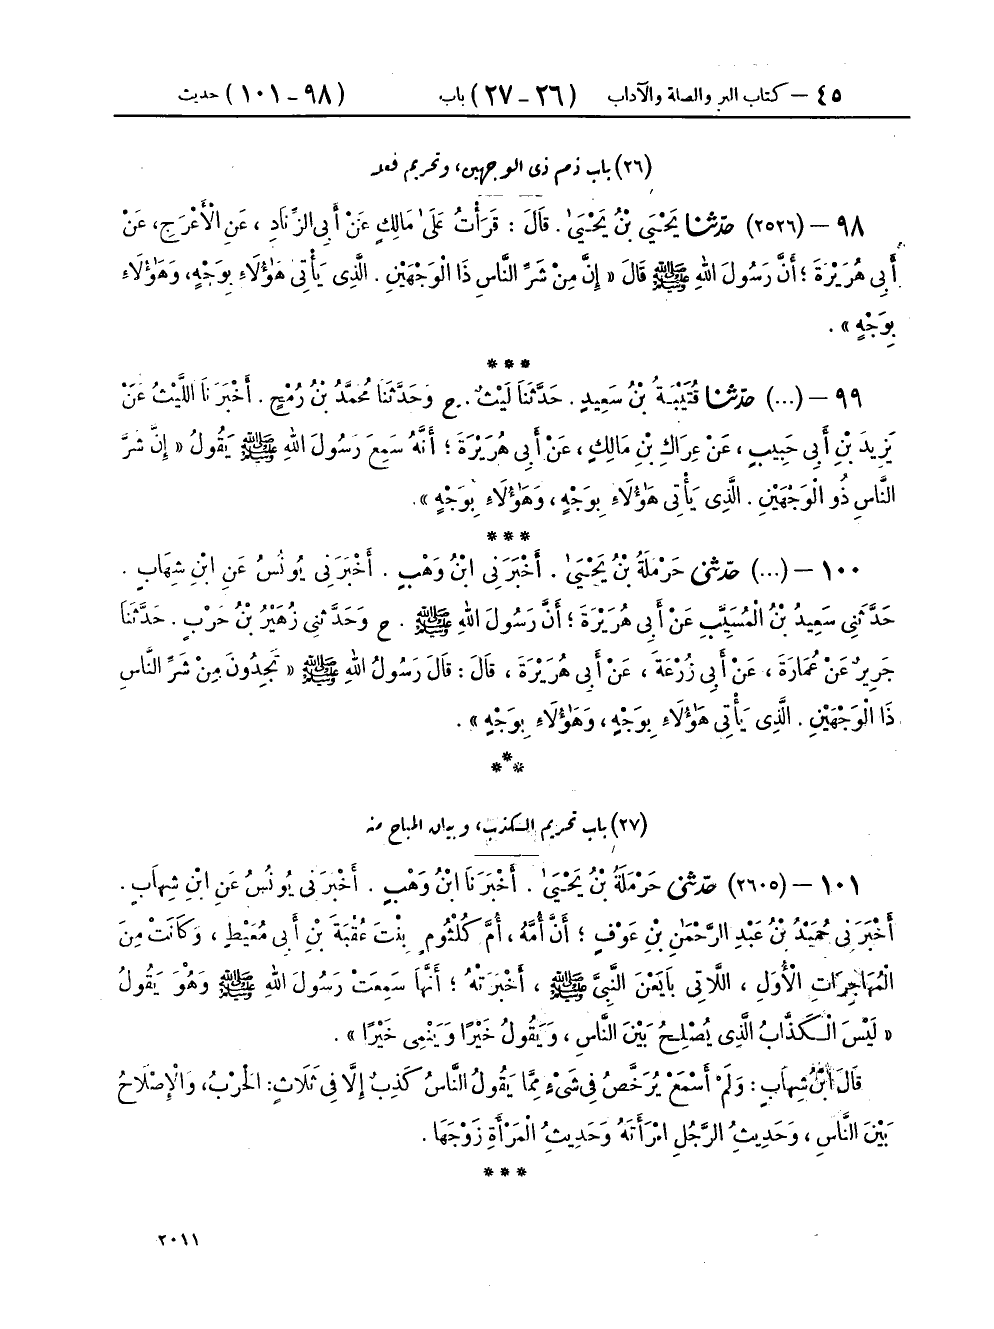 ٤٥ – كتاب البر والصلة والآداب (٢٦ – ٢٧) باب (٩٨ – ١٠١) حديث
(٢٦) باب ذم ذى الوجهين، وتحريم فعله
٩٨ – (٢٥٢٦) حدّثنا يَحْيَىٰ بْنُ يَحْيَىٰ. قَالَ : قَرَأْتُ عَلَىٰ مَالِكٍ عَنْ أَبِى الزِّنَادِ ، عَنِ الْأَعْرَجِ، عَنْ
أَبِى هُرَيْرَةَ ؛ أَنَّ رَسُولَ اللهِ ﷺ قَالَ « إِنَّ مِنْ شَرِّ النَّاسِ ذَا الْوَجْهَيْنِ . الَّذِى يَأْتِى هَٰؤُلَاءِ بِوَجْهٍ، وَهَٰؤُلَاءِ
بِوَجْهٍ » .
***
٩٩ – (...) حدّثنا قُتَيْبَةُ بْنُ سَعِيدٍ . حَدَّثَنَا لَيْثٌ . ح وَحَدَّثَنَا مُحَمَّدُ بْنُ رُمْحٍ . أَخْبَرَنَا اللَّيْثُ عَنْ
يَزِيدَ بْنِ أَبِى حَبِيبٍ ، عَنْ عِرَاكِ بْنِ مَالِكٍ ، عَنْ أَبِى هُرَيْرَةَ ؛ أَنَّهُ سَمِعَ رَسُولَ اللهِ ﷺ يَقُولُ « إِنَّ شَرَّ
النَّاسِ ذُو الْوَجْهَيْنِ . الَّذِى يَأْتِى هَٰؤُلَاءِ بِوَجْهٍ ، وَهَٰؤُلَاءِ بِوَجْهٍ ».
***
١٠٠ – (...) حدّثنى حَرْمَلَةُ بْنُ يَحْيَىٰ . أَخْبَرَنِى ابْنُ وَهْبٍ . أَخْبَرَنِى يُونُسُ عَنِ ابْنِ شِهَابٍ .
حَدَّثَنِى سَعِيدُ بْنُ الْمُسَيَّبِ عَنْ أَبِى هُرَيْرَةَ ؛ أَنَّ رَسُولَ اللهِ ﷺ . ح وَحَدَّثَنِى زُهَيْرُ بْنُ حَرْبٍ . حَدَّثَنَا
جَرِيرٌ عَنْ عُمَارَةَ ، عَنْ أَبِى زُرْعَةَ ، عَنْ أَبِى هُرَيْرَةَ ، قَالَ : قَالَ رَسُولُ اللهِ ﷺ « تَجِدُونَ مِنْ شَرِّ النَّاسِ
ذَا الْوَجْهَيْنِ . الَّذِى يَأْتِى هَٰؤُلَاءِ بِوَجْهٍ ، وَهَٰؤُلَاءِ بِوَجْهٍ » .
***
(٢٧) باب تحريم الكذب، وبيان المباح منه
١٠١ – (٢٦٠٥) حدّثنى حَرْمَلَةُ بْنُ يَحْيَىٰ . أَخْبَرَنَا ابْنُ وَهْبٍ . أَخْبَرَنِى يُونُسُ عَنِ ابْنِ شِهَابٍ .
أَخْبَرَنِى حُمَيْدُ بْنُ عَبْدِ الرَّحْمَٰنِ بْنِ عَوْفٍ ؛ أَنَّ أُمَّهُ ، أُمَّ كُلْثُومٍ بِنْتَ عُقْبَةَ بْنِ أَبِى مُعَيْطٍ ، وَكَانَتْ مِنَ
الْمُهَاجِرَاتِ الْأُوَلِ ، اللَّاتِى بَايَعْنَ النَّبِىَّ ﷺ ، أَخْبَرَتْهُ ؛ أَنَّهَا سَمِعَتْ رَسُولَ اللهِ ﷺ وَهُوَ يَقُولُ
« لَيْسَ الْكَذَّابُ الَّذِى يُصْلِحُ بَيْنَ النَّاسِ ، وَيَقُولُ خَيْرًا وَيَنْمِى خَيْرًا » .
قَالَ ابْنُ شِهَابٍ : وَلَمْ أَسْمَعْ يُرَخَّصُ فِى شَىْءٍ مِمَّا يَقُولُ النَّاسُ كَذِبٌ إِلَّا فِى ثَلَاثٍ: الْحَرْبُ، وَالْإِصْلَاحُ
بَيْنَ النَّاسِ ، وَحَدِيثُ الرَّجُلِ امْرَأَتَهُ وَحَدِيثُ الْمَرْأَةِ زَوْجَهَا .
***
٢٠١١